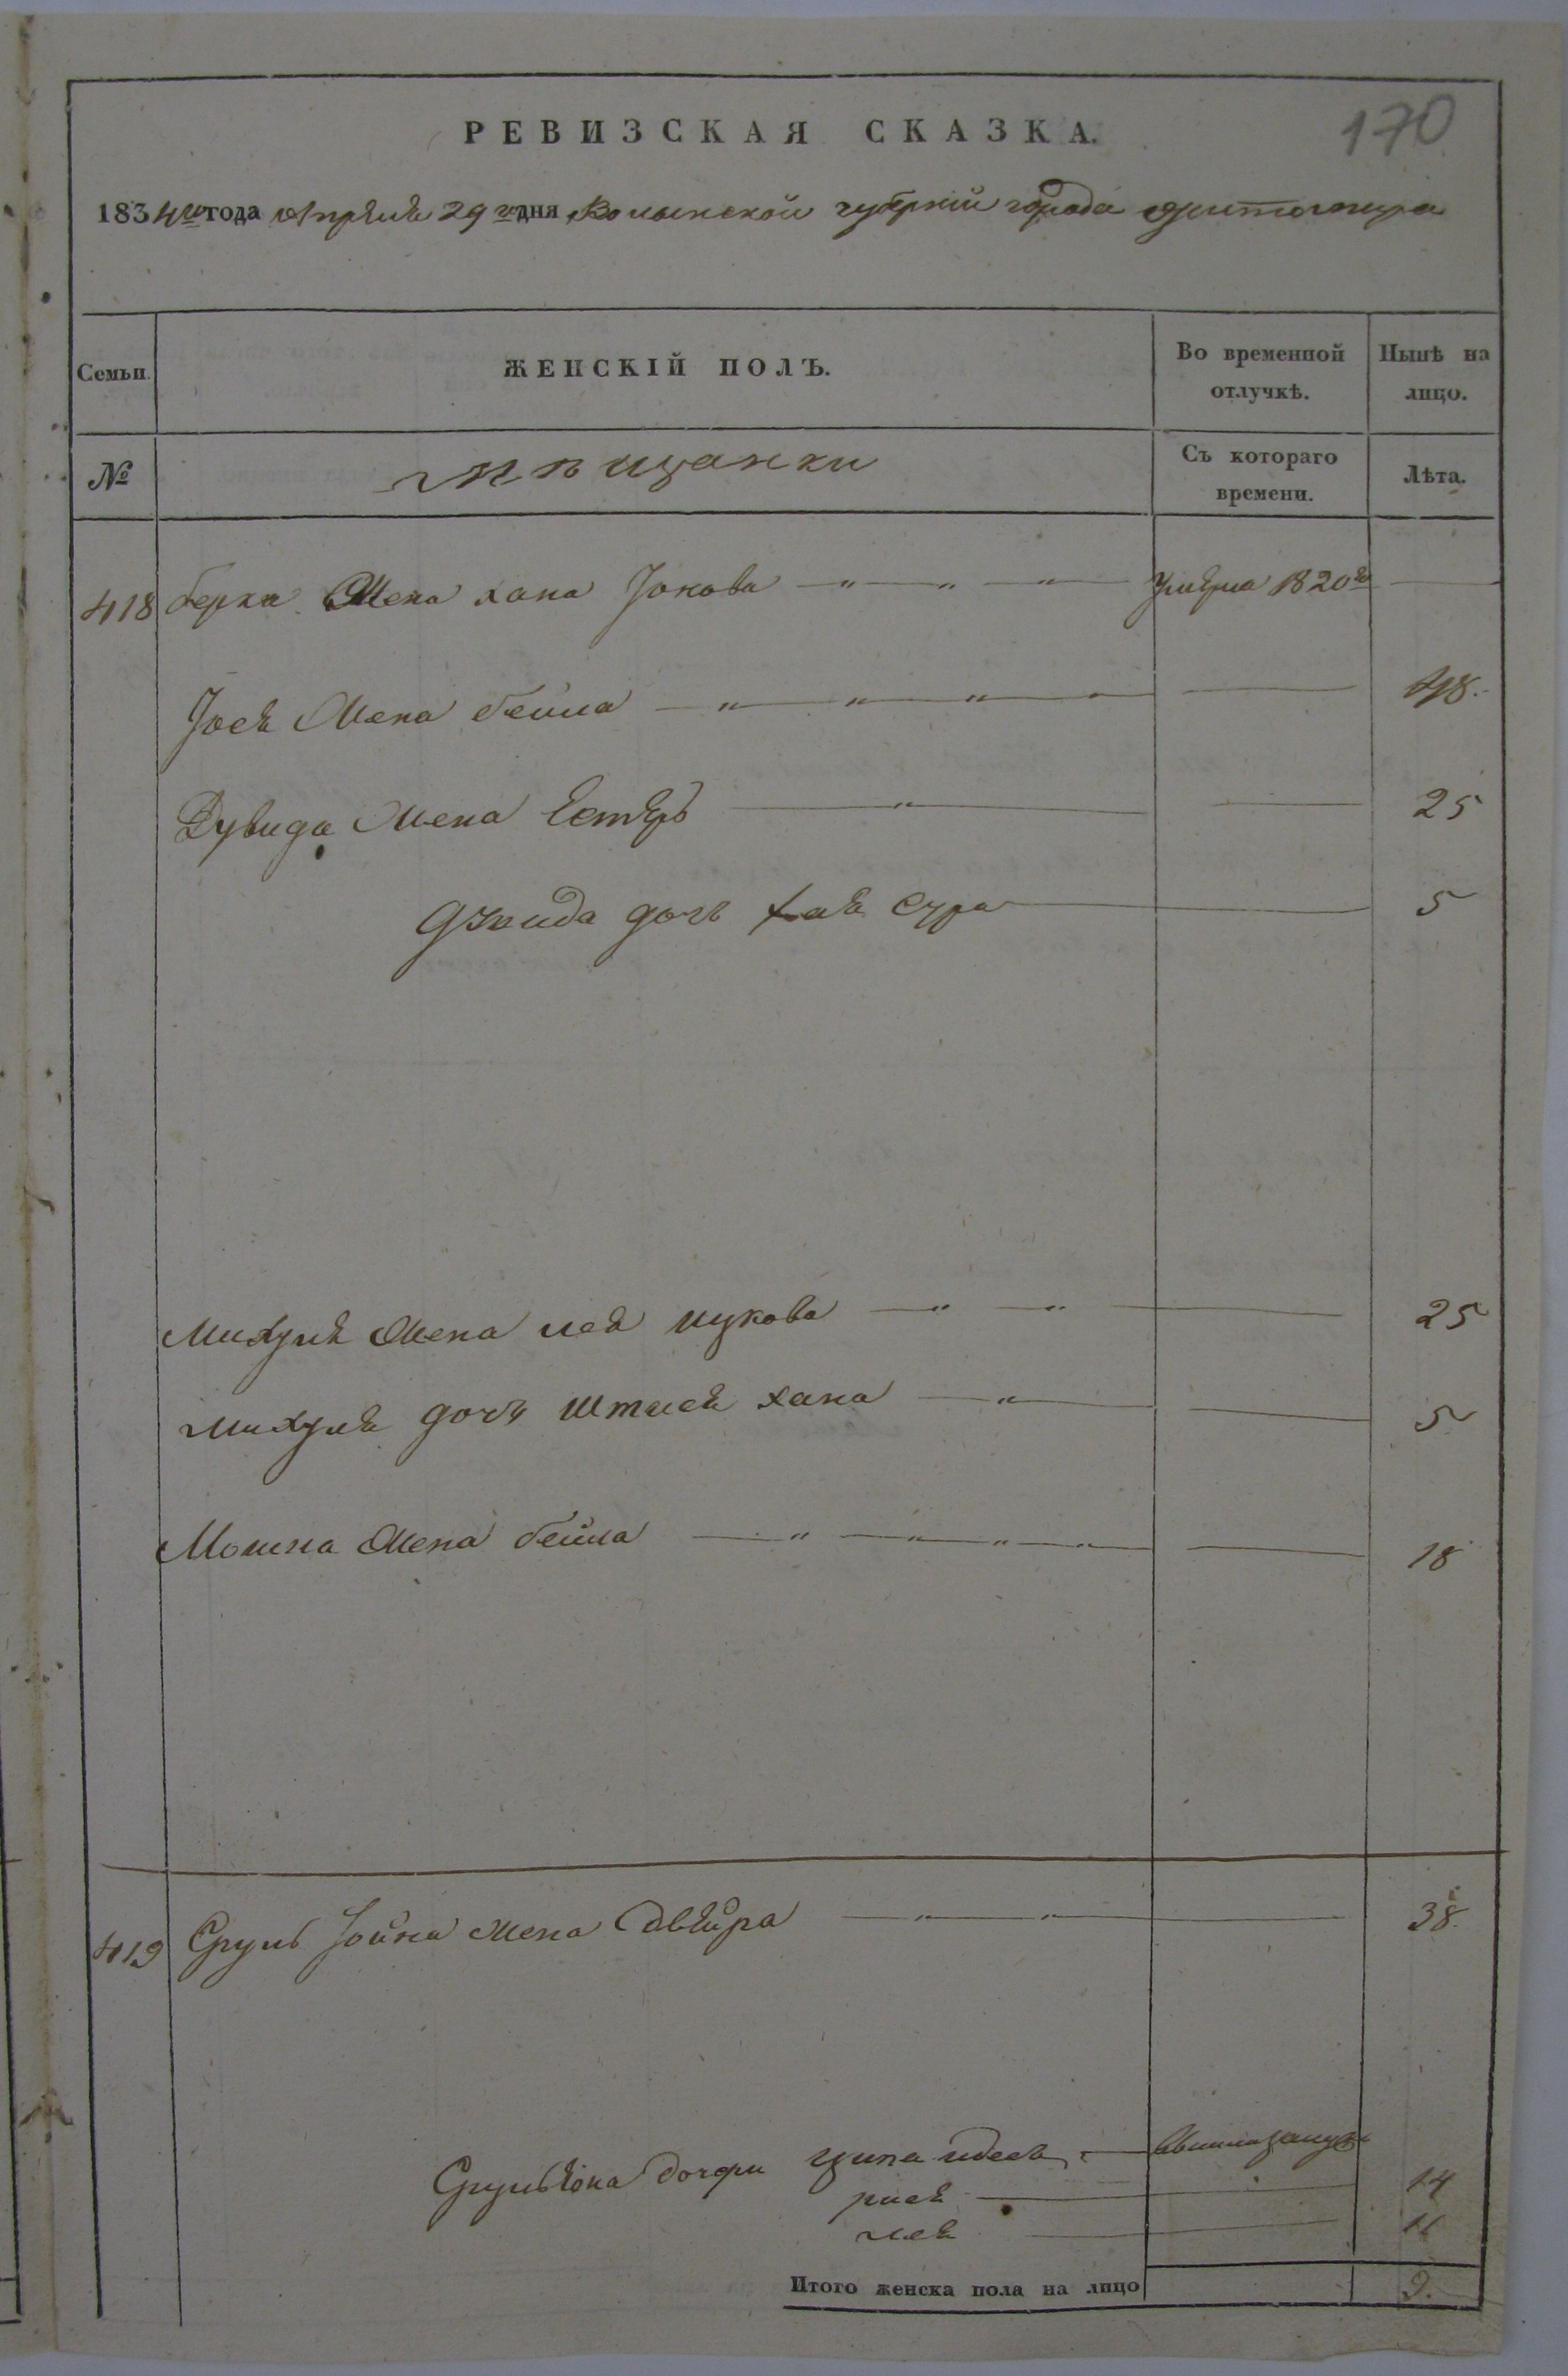 170
РЕВИЗСКАЯ СКАЗКА.
1834го года Апреля 29го дня Волынской губернии города Житомира
Семьи. ЖЕНСКІЙ ПОЛЪ. Во временной отлучкѣ. Нынѣ на лицо.
№ мещанки Съ котораго времени. Лѣта.
418 Берка жена Хана Іонова умерла 1820го
Іося жена Бейла 48.
Дувида жена Естеръ 25
дочь Хая Сура 5
Михуля жена Лея 25
Михуля дочь Хана 5
Мошка жена Бейла 18
419 Сруль Іойна жена Двейра 38.
дочери Ципа вышла замужъ
14
лея 11
Итого женска пола на лицо 9.